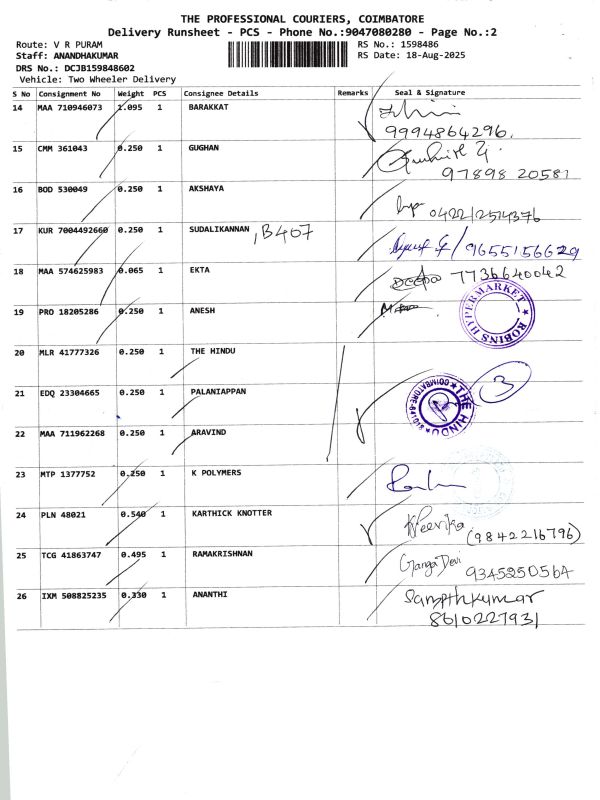 THE PROFESSIONAL COURIERS, COIMBATORE
Delivery Runsheet - PCS - Phone No.:9047080280 - Page No.:2
Route: V R PURAM
RS No.: 1598486
Staff: ANANDHAKUMAR
RS Date: 18-Aug-2025
DRS No.: DCJB159848602
Vehicle: Two Wheeler Delivery
S No Consignment No Weight PCS Consignee Details Remarks Seal & Signature
14 MAA 710946073 1.095 1 BARAKKAT
9994864296.
15 CMM 361043 0.250 1 GUGHAN
97898 20581
16 BOD 530049 0.250 1 AKSHAYA
0422/2514376
17 KUR 7004492660 0.250 1 SUDALIKANNAN , B407
/9655156629
18 MAA 574625983 0.065 1 EKTA
Deepa 7736640042
19 PRO 18205286 0.250 1 ANESH
ROBINS HYPERMARKET
20 MLR 41777326 0.250 1 THE HINDU
21 EDQ 23304665 0.250 1 PALANIAPPAN
3
THE HINDU
COIMBATORE-641018
22 MAA 711962268 0.250 1 ARAVIND
23 MTP 1377752 0.250 1 K POLYMERS
24 PLN 48021 0.540 1 KARTHICK KNOTTER
Neerika (9842216796)
25 TCG 41863747 0.495 1 RAMAKRISHNAN
Ganga Devi 9345250564
26 IXM 508825235 0.330 1 ANANTHI
Sampthkumar
8610227931